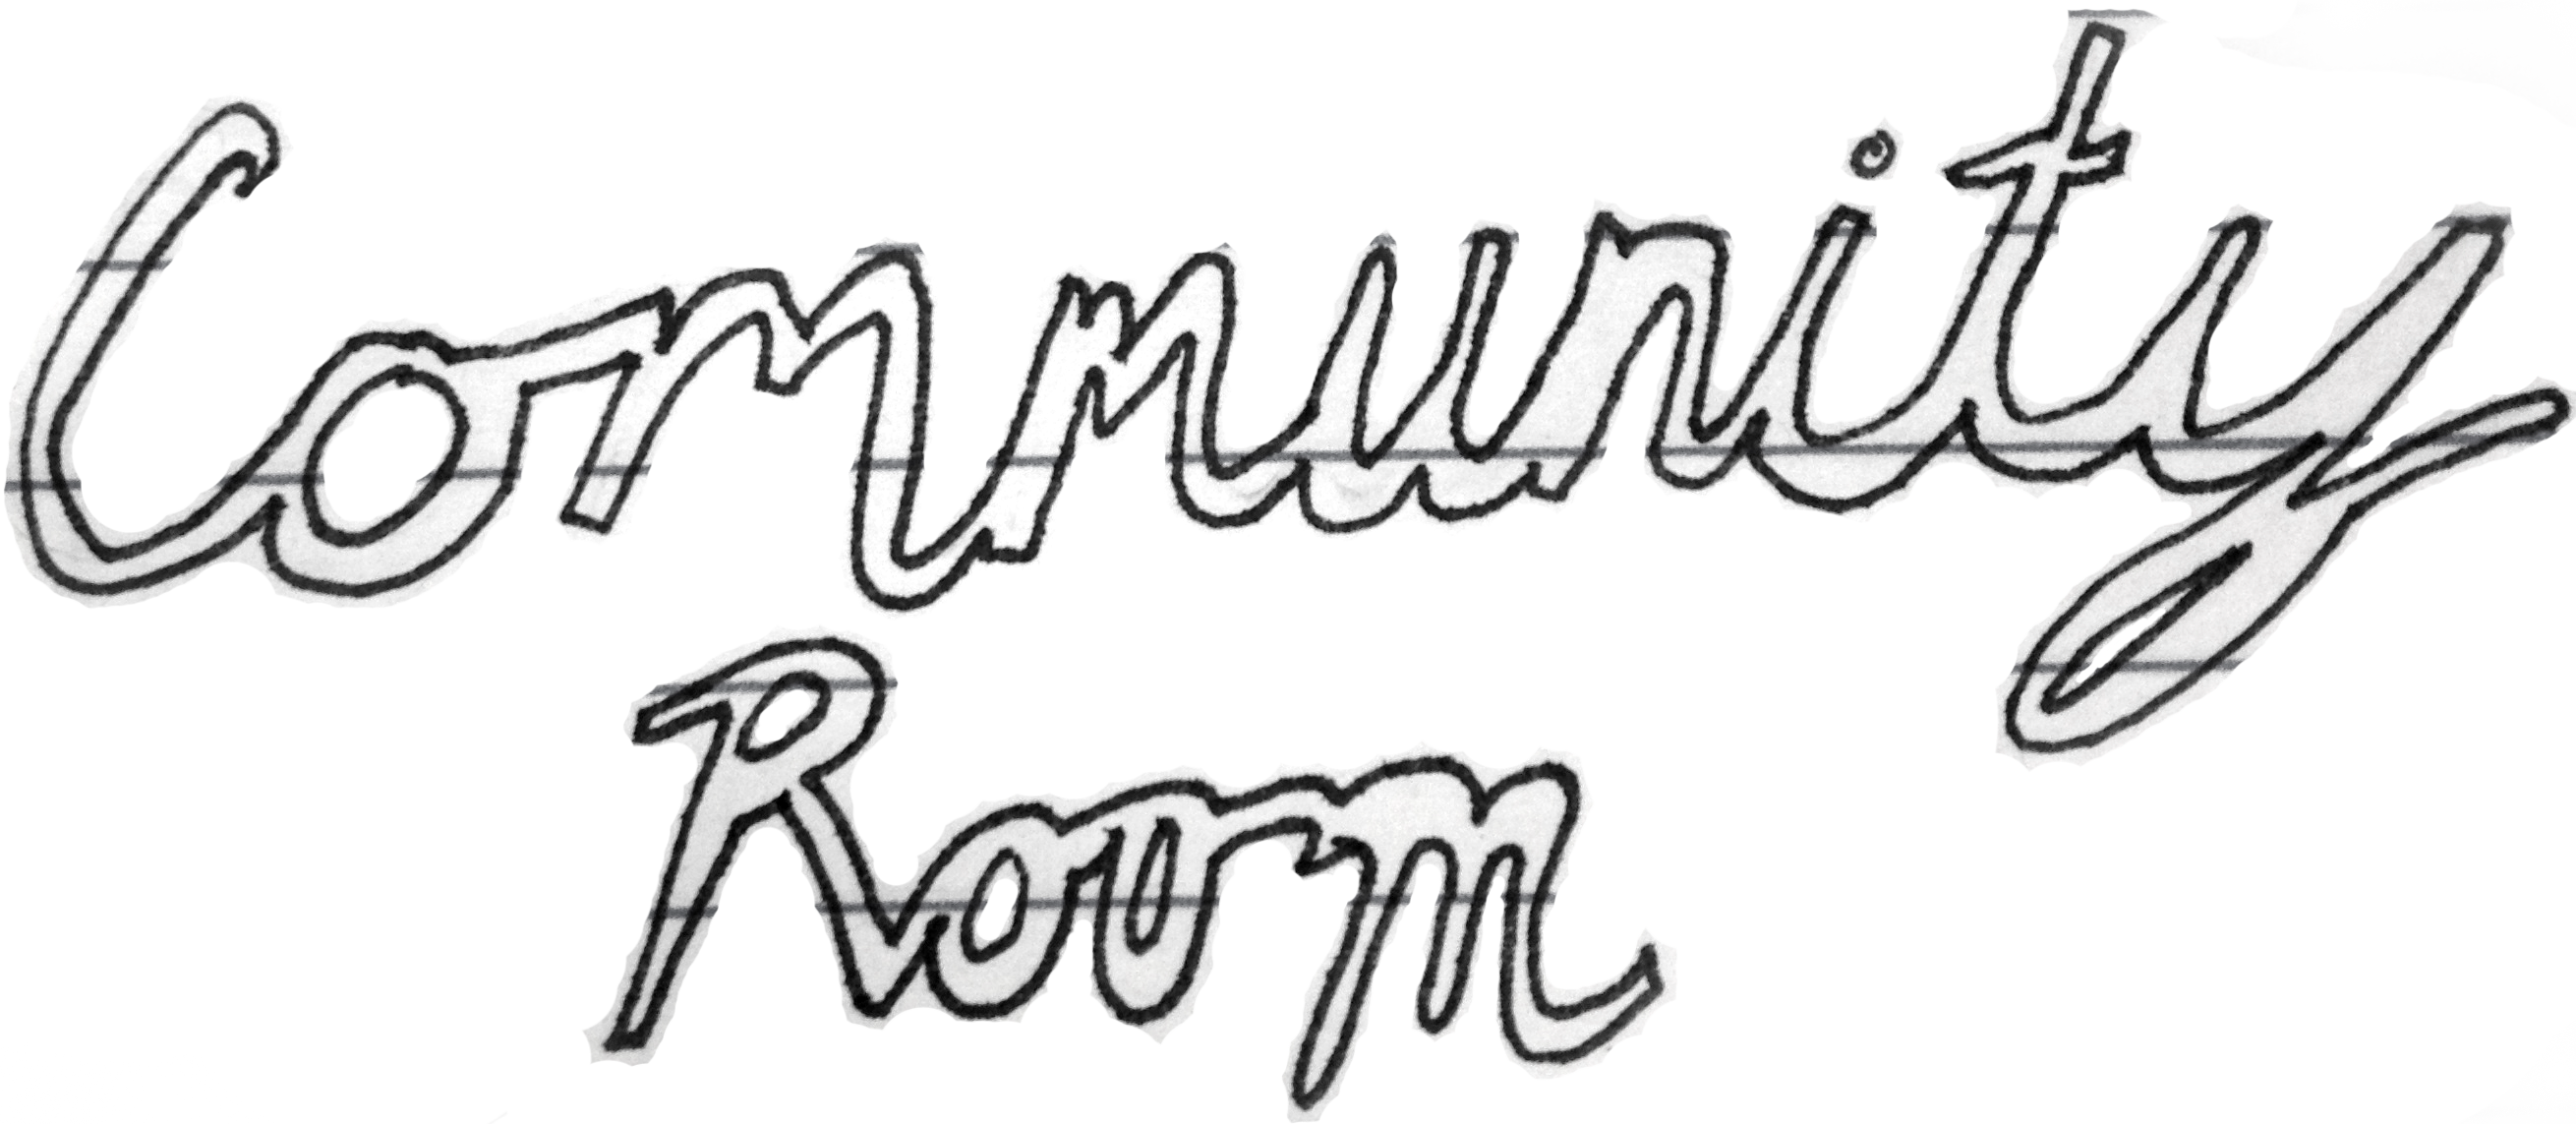 Community
Room